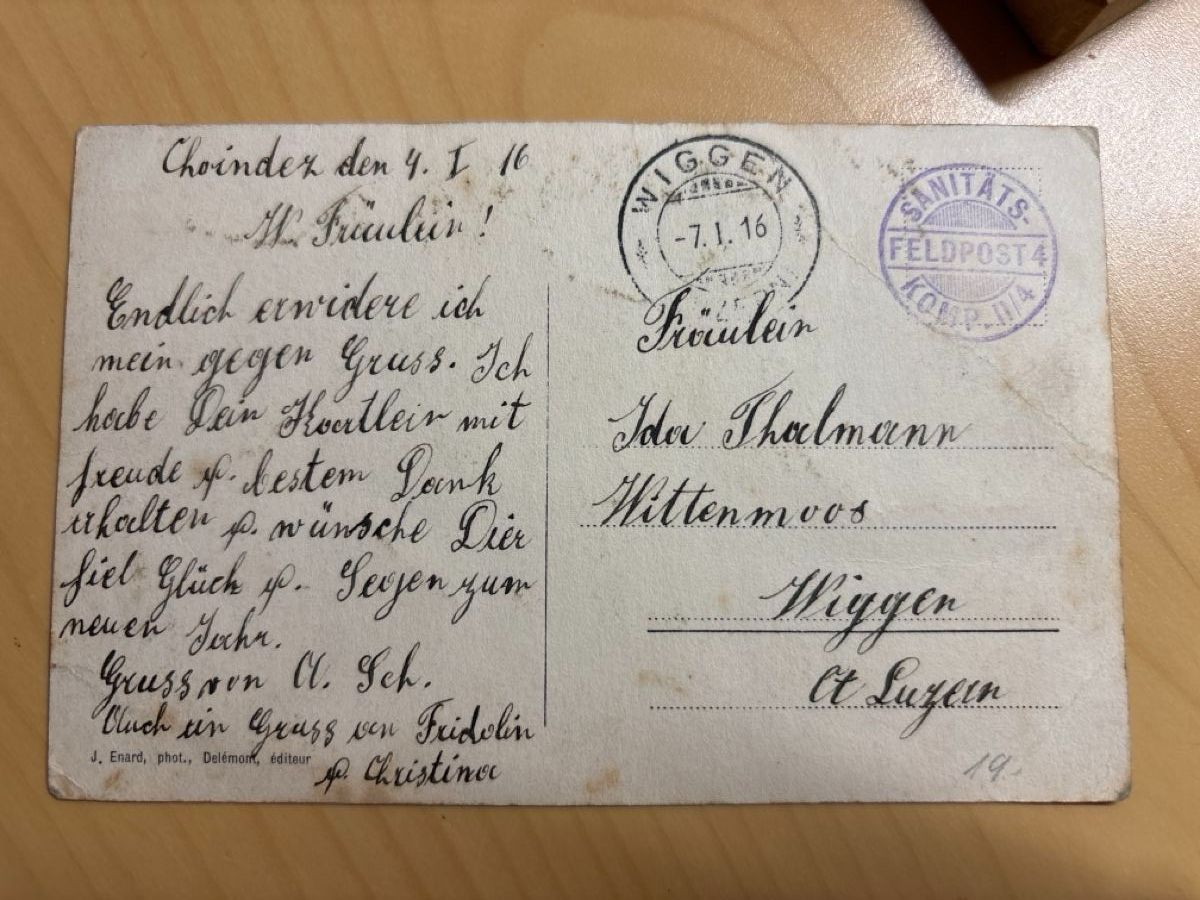 Choindez den 4. I 16
W. Fräulein!
Endlich erwidere ich
mein gegen Gruss. Ich
habe Dein Kaartlein mit
freude u. bestem Dank
erhalten u. wünsche Dier
fiel Glück u. Segen zum
neuen Jahr.
Gruss von A. Sch.
Auch ein Gruss an Fridolin
u. Christina
J. Enard, phot., Delémont, éditeur
WIGGEN
-7. I. 16
SANITÄTS-
FELDPOST 4
KOMP. II/4
Fräulein
Ida Thalmann
Wittenmoos
Wiggen
Ct Luzern
19.-